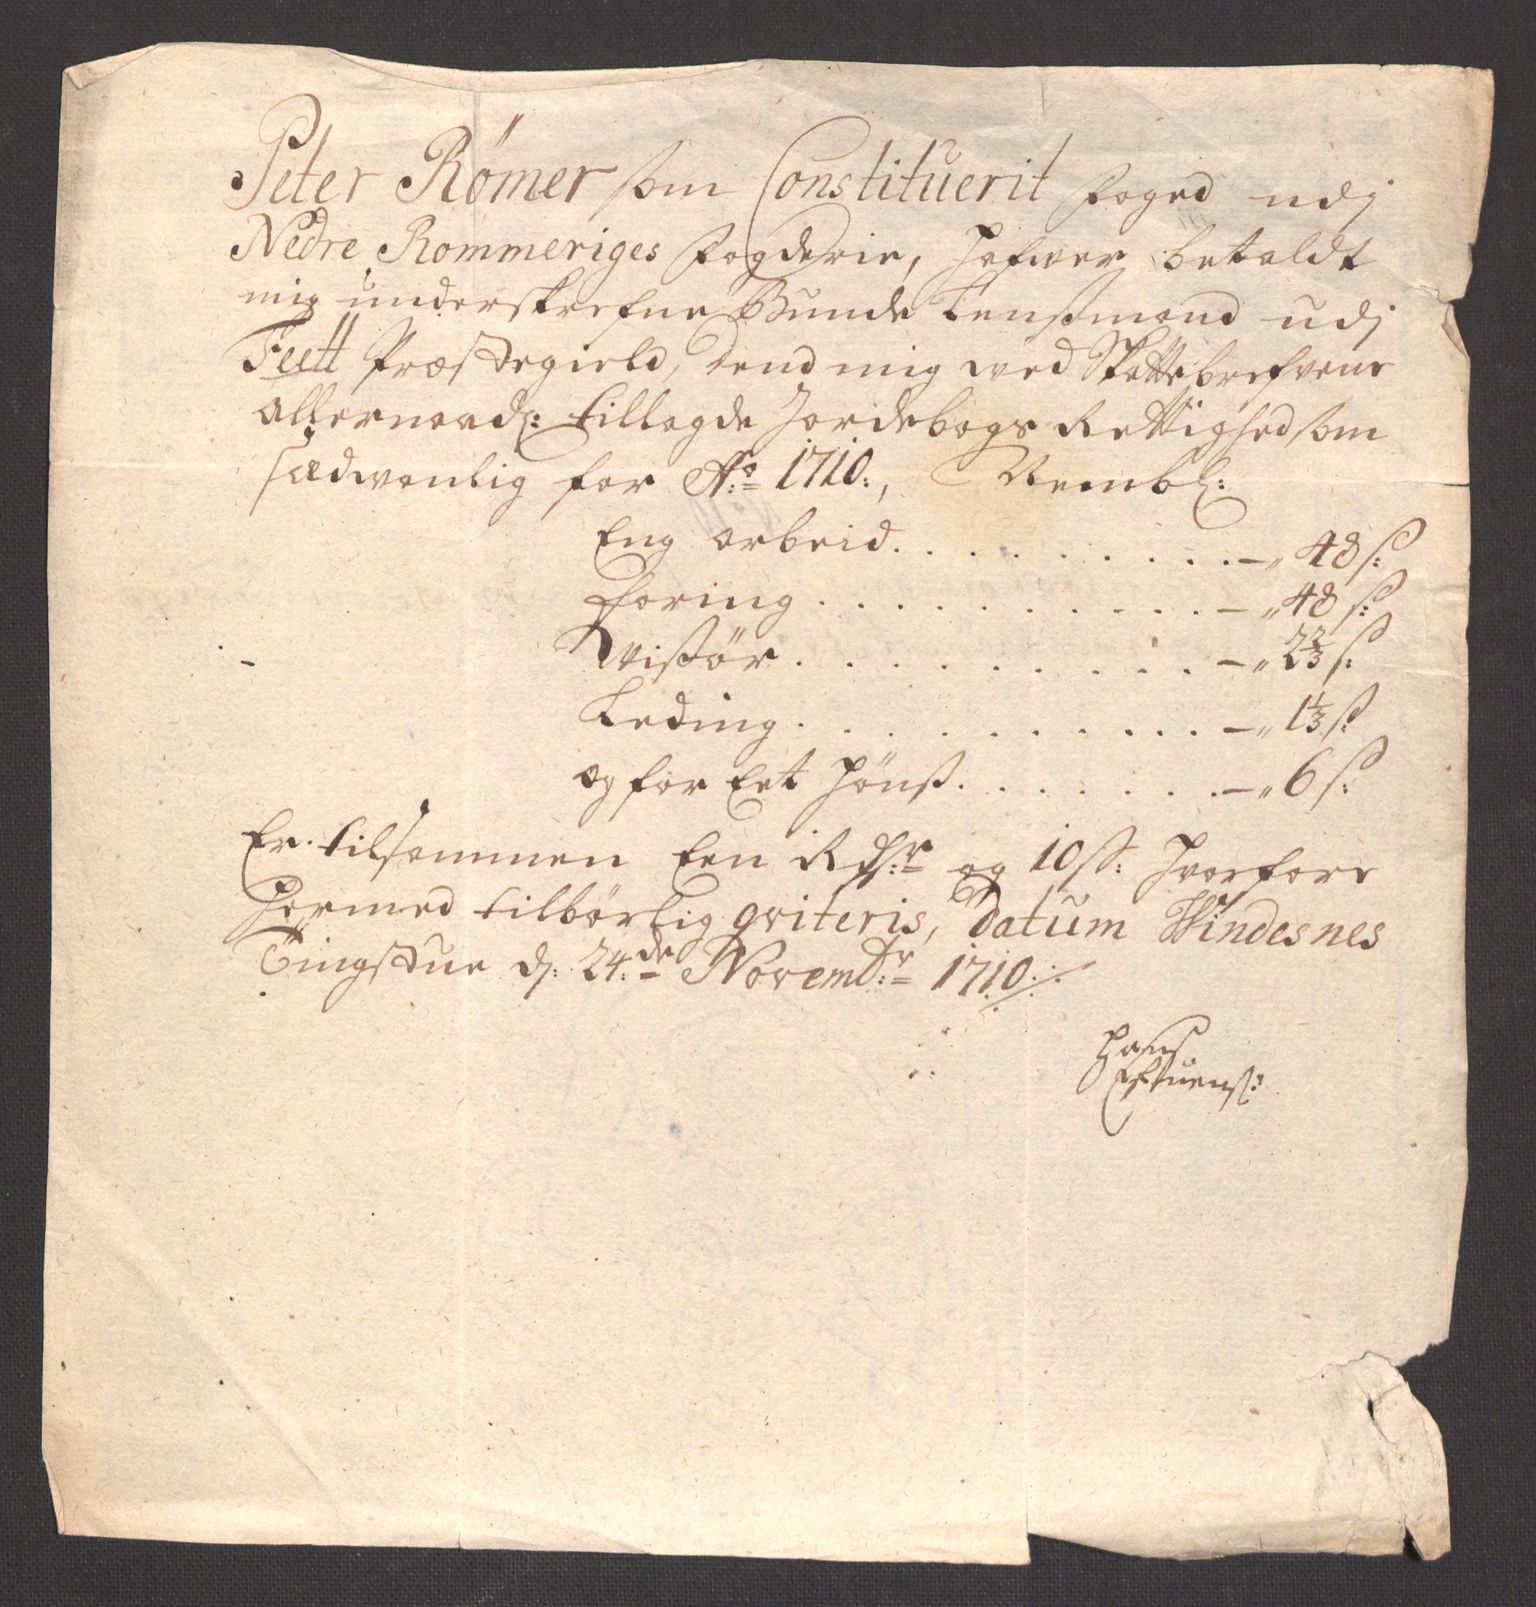 Peter Römer som Constituerit foged udj
Nedre Rommeriges fogderie, hafwer betaldt
mig underskrefne Bunde Lensmand udj
Feett Præstegield, dend mig wed Skattebrefvene
allernaad: tillagde Jordebogs Rettighed som
sædwanlig for Ao 1710:, Nembl:
Eng arbeid . . . . . . . . . . — „ 48 ß:
Foring . . . . . . . . . . . — „ 48 ß:
Wissør . . . . . . . . . . — „ 2 2/3 ß:
Leding . . . . . . . . . . . — „ 1 1/3 ß:
og for Eet Høns . . . . . . . — „ 6 ß:
Er tilsammen Een Rdr og 10 ß: hvorfore
hermed tilbørlig qviteris, datum Windesnes
Tingstue d: 24de Novembr 1710:
Hans